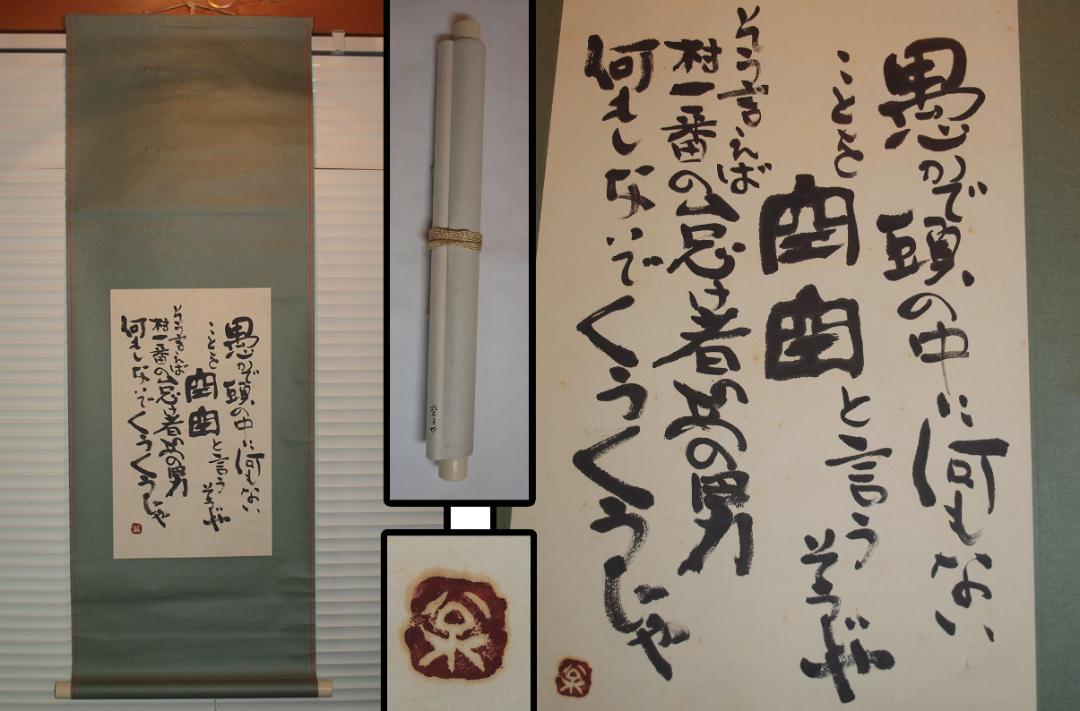 愚かで頭の中に何もない
ことを空空と言うそうぢゃ
そう言えば
村一番の怠け者あの男
何もしないでくうくうじゃ
愚かで頭の中に何もない
ことを空空と言うそうぢゃ
そう言えば
村一番の怠け者あの男
何もしないでくうくうじゃ